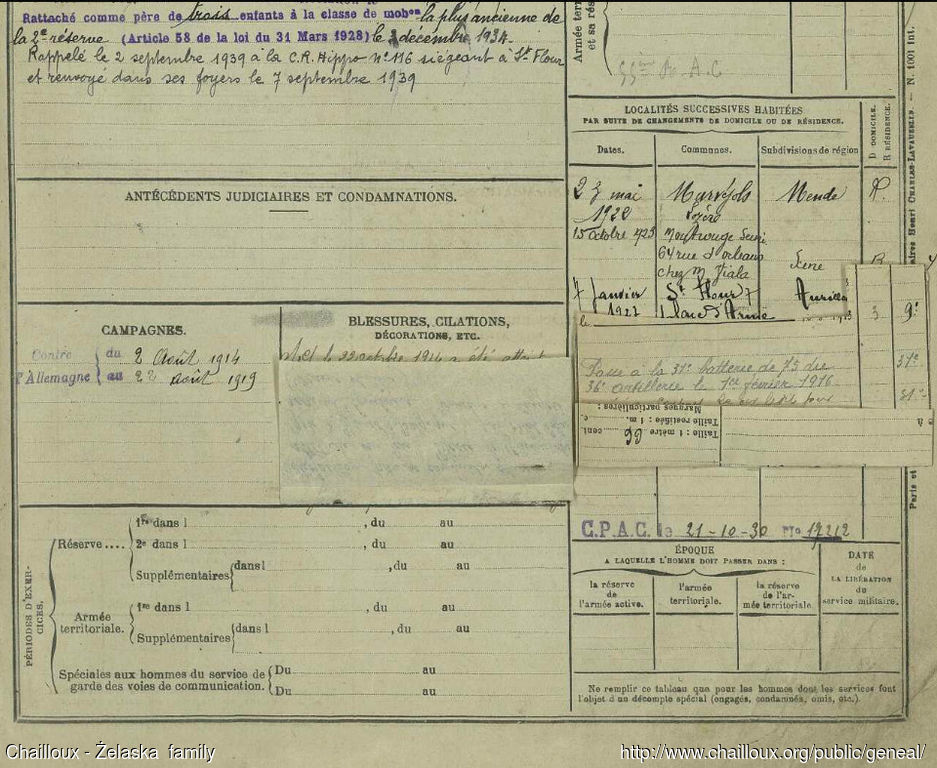 Rattaché comme père de trois enfants à la classe de mobon la plus ancienne de
la 2e réserve (Article 58 de la loi du 31 Mars 1928) le 3 décembre 1934.
Rappelé le 2 septembre 1939 à la C.R. Hippo No 116 siégeant à St Flour
et renvoyé dans ses foyers le 7 septembre 1939
ANTÉCÉDENTS JUDICIAIRES ET CONDAMNATIONS.
CAMPAGNES.
Contre l'Allemagne
du 2 Août 1914
au 22 Août 1919
BLESSURES, CITATIONS,
DÉCORATIONS, ETC.
le 22 octobre 1914 a été
PÉRIODES D'EXERCICES.
Réserve....
1re dans l , du au
2e dans l , du au
Supplémentaires dans l , du au
Armée territoriale.
1re dans l , du au
Supplémentaires dans l , du au
Spéciales aux hommes du service de
garde des voies de communication.
Du au
Du au
Armée terri
et sa rés
LOCALITÉS SUCCESSIVES HABITÉES
PAR SUITE DE CHANGEMENTS DE DOMICILE OU DE RÉSIDENCE.
Dates. Communes. Subdivisions de région
D DOMICILE.
R RÉSIDENCE.
23 mai Marvejols Mende
1920 Lozère
15 octobre 1925 Montrouge Seine
64 rue d'Orléans
chez M Viala
7 Janvier St Flour
1927
le
3 9e
à la 31e batterie de 75 du 37e
36e artillerie le 1er février 1916
Marques particulières :
Taille rectifiée : 1 m. c.
Taille : 1 mètre 66 cent
C.P.A.C. le 21-10-30 No 19212
ÉPOQUE
A LAQUELLE L'HOMME DOIT PASSER DANS :
la réserve
de
l'armée active.
l'armée
territoriale.
la réserve
de l'ar-
mée territoriale
DATE
de
LA LIBÉRATION
du
service militaire.
Ne remplir ce tableau que pour les hommes dont les services font
l'objet d'un décompte spécial (engagés, condamnés, omis, etc.).
Henri CHARLES-LAVAUZELLE. — N. 1001 int.
Paris et
Chailloux - Żelaska family
http://www.chailloux.org/public/geneal/